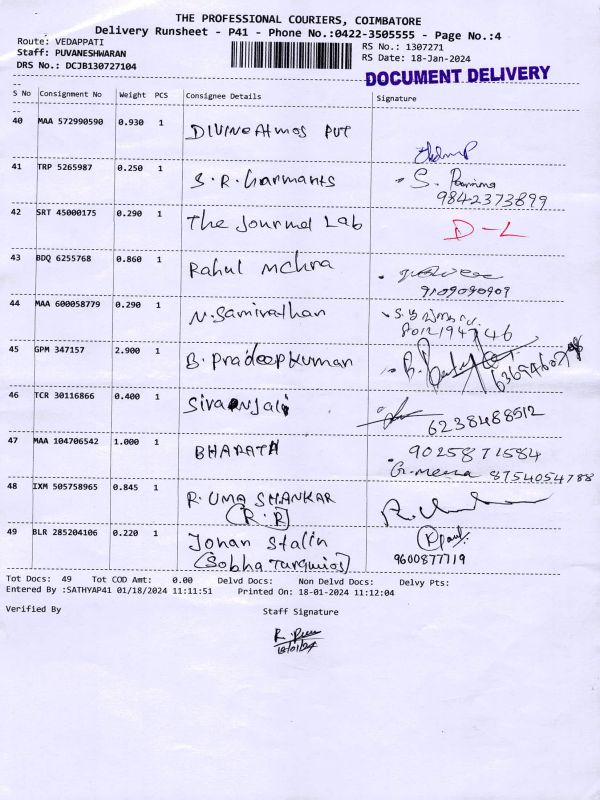 THE PROFESSIONAL COURIERS, COIMBATORE
Delivery Runsheet - P41 - Phone No.:0422-3505555 - Page No.:4
Route: VEDAPPATI
RS No.: 1307271
Staff: PUVANESHWARAN
RS Date: 18-Jan-2024
DRS No.: DCJB130727104
DOCUMENT DELIVERY
S No Consignment No Weight PCS Consignee Details Signature
40 MAA 572990590 0.930 1 DIVINE Atmos PVT
41 TRP 5265987 0.250 1 S.R. Garmants S. 
9842373899
42 SRT 45000175 0.290 1 The Journal Lab D-L
43 BDQ 6255768 0.860 1 Rahul Mehra
9109090909
44 MAA 600058779 0.290 1 N. Saminathan
45 GPM 347157 2.900 1 B. Pradeepkumar
46 TCR 30116866 0.400 1 Sivaanjali
6238488512
47 MAA 104706542 1.000 1 BHARATH 9025871584
G. Meena 8754054788
48 IXM 505758965 0.845 1 R. UMA SHANKAR
(R.R)
49 BLR 285204106 0.220 1 Johan Stalin
(Sobha Turquios) 9600877719
Tot Docs: 49 Tot COD Amt: 0.00 Delvd Docs: Non Delvd Docs: Delvy Pts:
Entered By :SATHYAP41 01/18/2024 11:11:51 Printed On: 18-01-2024 11:12:04
Verified By Staff Signature